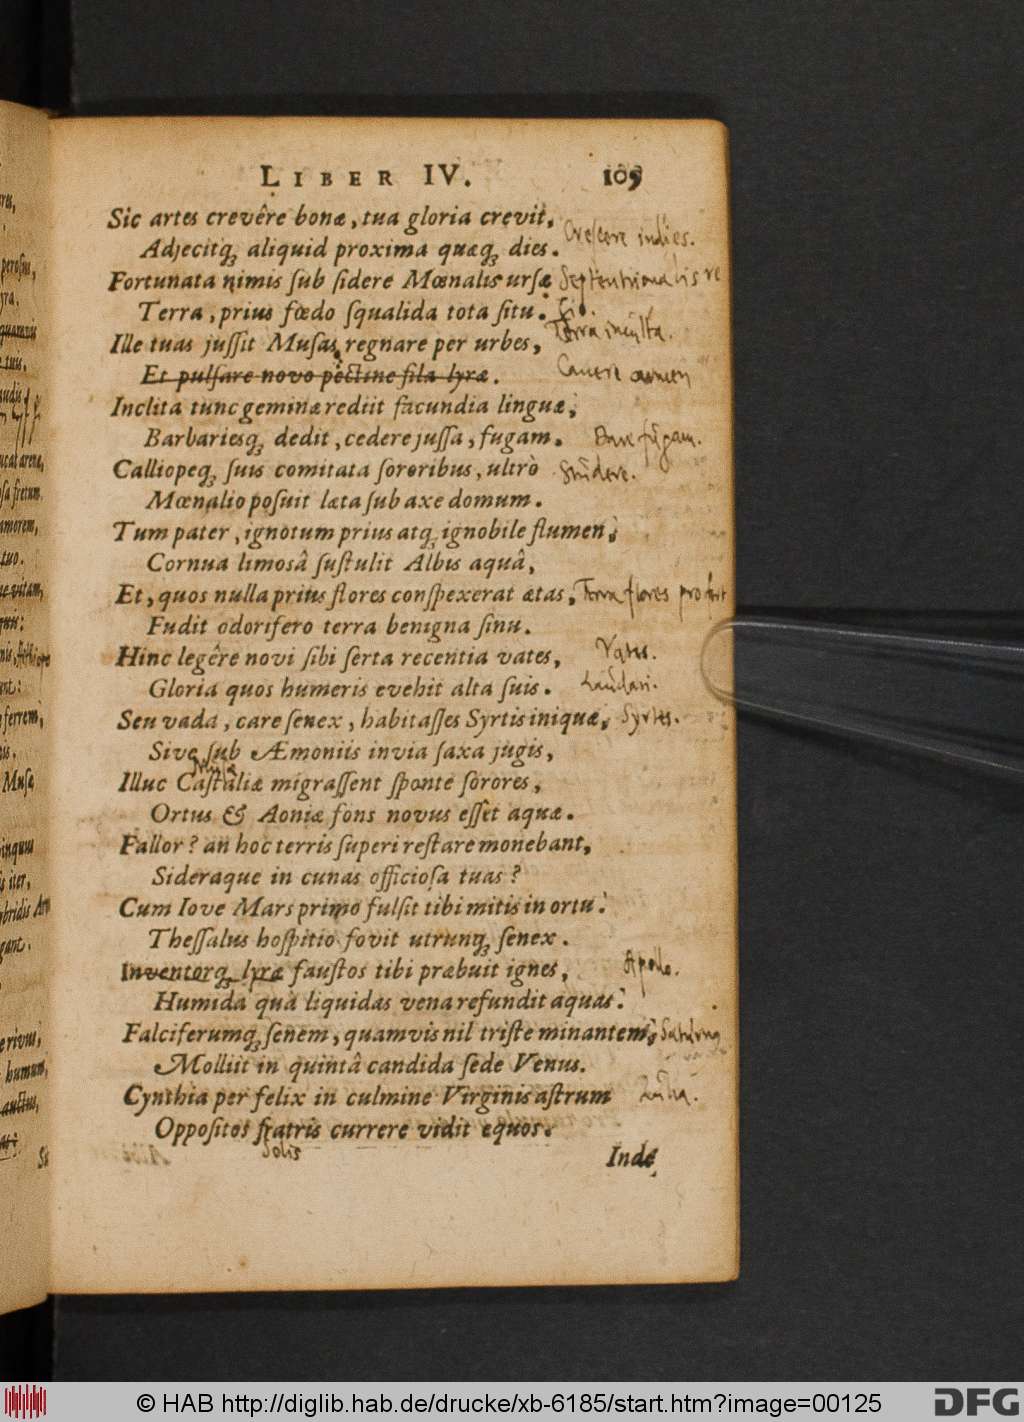 LIBER IV. 109
Sic artes crevêre bonæ, tua gloria crevit,
Crescere indies.
Adjecitq; aliquid proxima quæq; dies.
Fortunata nimis ſub ſidere Mœnalis urſæ
Septentrionalis re
gio.
Terra, prius fœdo ſqualida tota ſitu.
Terra inculta.
Ille tuas juſſit Muſas regnare per urbes,
Et pulſare novo pectine fila lyræ.
Canere
Inclita tunc geminæ rediit facundia linguæ;
Barbariesq; dedit, cedere juſſa, fugam.
Dare fugam.
Calliopeq; ſuis comitata ſororibus, ultrò
Studere.
Mœnalio poſuit læta ſub axe domum.
Tum pater, ignotum prius atq; ignobile flumen;
Cornua limosâ ſuſtulit Albis aquâ,
Et, quos nulla prius flores conſpexerat ætas,
Terra flores
Fudit odorifero terra benigna ſinu.
Hinc legêre novi ſibi ſerta recentia vates,
Vates.
Gloria quos humeris evehit alta ſuis.
Laudari.
Seu vada, care ſenex, habitaſſes Syrtis iniquæ,
Syrtes.
Sive ſub Æmoniis invia ſaxa jugis,
Musæ
Illuc Caſtaliæ migraſſent ſponte ſorores,
Ortus & Aoniæ fons novus eſſêt aquæ.
Fallor? an hoc terris ſuperi reſtare monebant,
Sideraque in cunas officioſa tuas?
Cum Iove Mars primo fulſit tibi mitis in ortu:
Theſſalus hoſpitio fovit utrunq; ſenex.
Inventorq; lyræ fauſtos tibi præbuit ignes,
Apollo.
Humida quà liquidas vena refundit aquas:
Falciferumq; ſenem, quamvis nil triſte minantem;
Saturnus
Molliit in quintâ candida ſede Venus.
Cynthia per felix in culmine Virginis aſtrum
Luna.
Oppoſitos fratris currere vidit equos.
Solis
Inde
© HAB http://diglib.hab.de/drucke/xb-6185/start.htm?image=00125
DFG